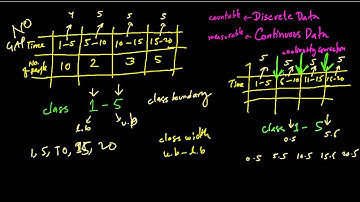 NO
GAP
4 5 5 5
Time 1-5 5-10 10-15 15-20
No. of people 10 2 3 5
class 1 - 5 class boundary
l.b u.b
class width
u.b - l.b
1, 5, 10, 15, 20
countable ← Discrete Data
measurable ← Continuous Data
continuity correction
5 5 5 5
Time 1-5 6-10 11-15 16-20
class 1 - 5
0.5 5.5
0.5 5.5 10.5 15.5 20.5